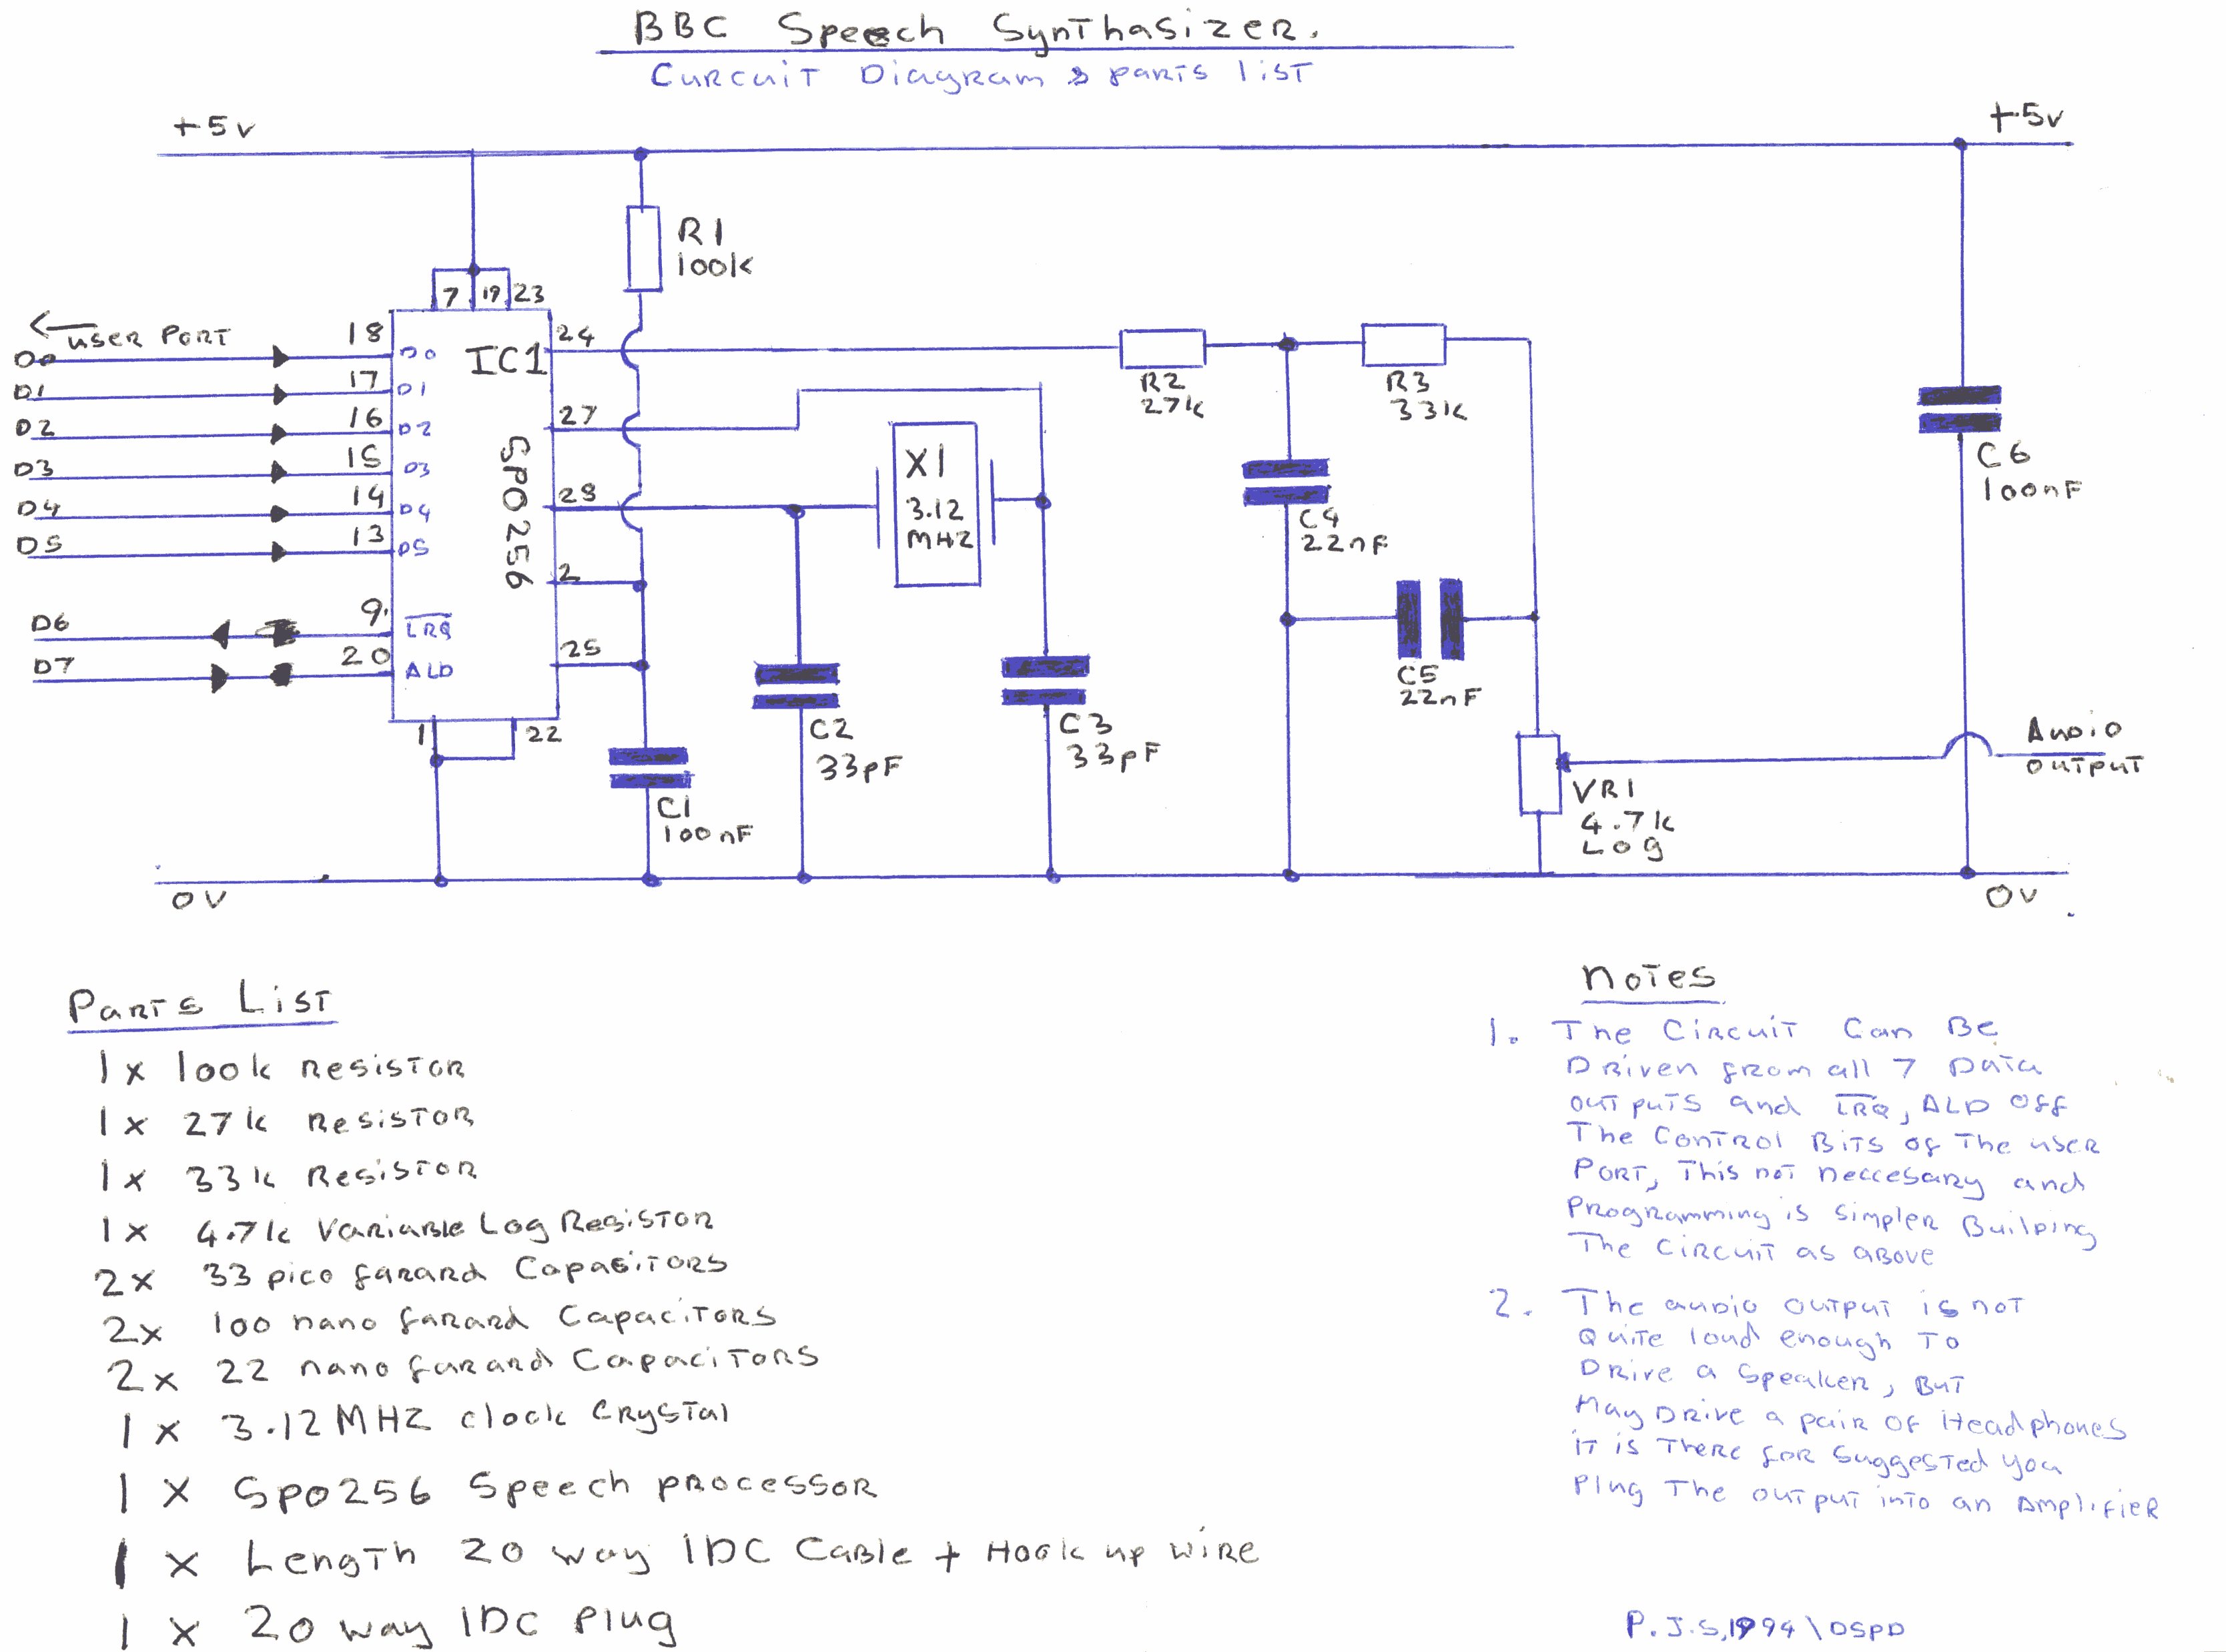 BBC Speech Synthasizer.
Curcuit Diagram & parts list
+5v
+5v
R1
100k
7 19 23
← user Port
D0
18
D0
IC1
24
D1
17
D1
R2
27k
R3
33k
D2
16
D2
27
D3
15
D3
SPO256
X1
3.12
MHZ
C6
100nF
D4
14
D4
28
C4
22nF
D5
13
D5
2
D6
9
LRQ
D7
20
ALD
25
C5
22nF
1
22
C2
33pF
C3
33pF
Audio
output
C1
100nF
VR1
4.7k
Log
0v
0v
Parts List
1 x 100k Resistor
1 x 27k Resistor
1 x 33k Resistor
1 x 4.7k Variable Log Resistor
2 x 33 pico farard Capasitors
2x 100 nano farard Capacitors
2 x 22 nano farard Capacitors
1 x 3.12 MHZ clock Crystal
1 x Spo256 Speech processor
1 x Length 20 way IDC Cable + Hook up wire
1 x 20 way IDC Plug
Notes
1. The Circuit Can Be
Driven from all 7 Data
outputs and LRQ, ALD Off
The Control Bits of The user
Port, This not neccesary and
Programming is simpler Builping
The Circuit as above
2. The audio output is not
Quite loud enough To
Drive a Speaker, But
May Drive a pair of Headphones
it is There for Suggested you
Plug The output into an Amplifier
P.J.S,1994\DSPD